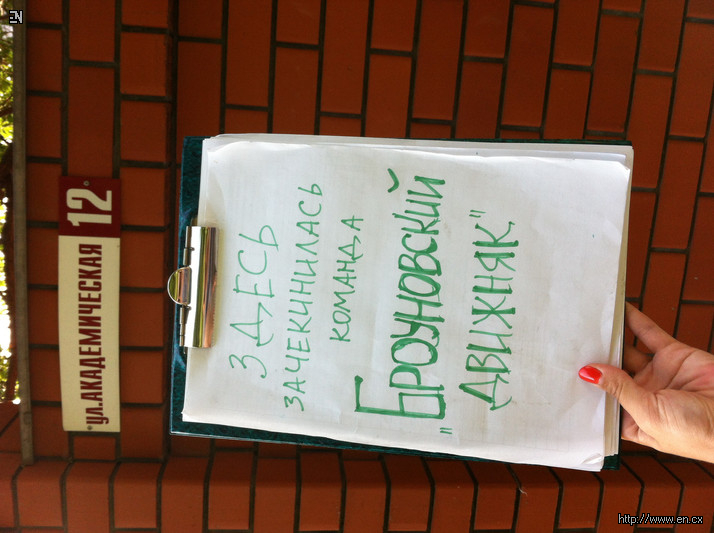 EN
ул. АКАДЕМИЧЕСКАЯ 12
ЗДЕСЬ
ЗАЧЕКИНИЛАСЬ
КОМАНДА
"БРОУНОВСКИЙ
ДВИЖНЯК"
http://www.en.cx